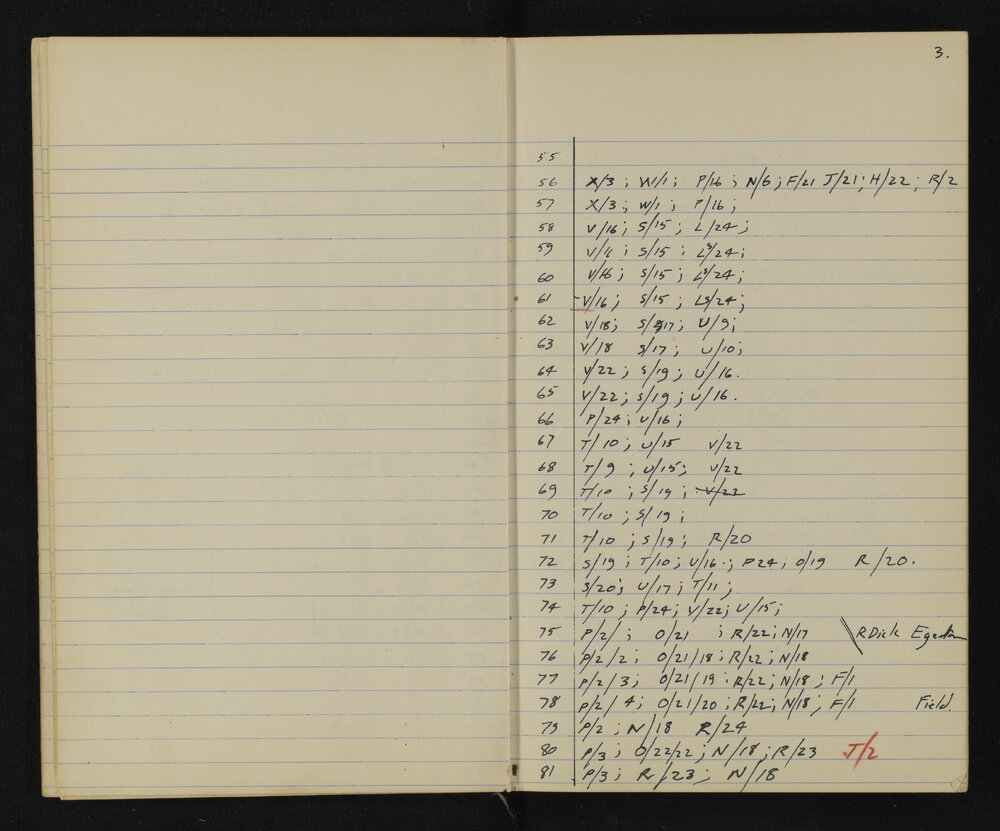 3.
55
56 X/3 ; W/1 ; P/16 ; N/6 ; F/21 J/21 ; H/22 ; R/2
57 X/3 ; W/1 ; P/16 ;
58 V/16 ; S/15 ; L/24 ;
59 V/16 ; S/15 ; LS/24 ;
60 V/16 ; S/15 ; LS/24 ;
61 V/16 ; S/15 ; LS/24 ;
62 V/18 ; S/17 ; U/9 ;
63 V/18 S/17 ; U/10 ;
64 V/22 ; S/19 ; U/16.
65 V/22 ; S/19 ; U/16.
66 P/24 ; U/16 ;
67 T/10 ; U/15 V/22
68 T/9 ; U/15 ; V/22
69 T/10 ; S/19 ; V/23
70 T/10 ; S/19 ;
71 T/10 ; S/19 ; R/20
72 S/19 ; T/10 ; U/16 . ; P24 ; O/19 R/20.
73 S/20 ; U/17 ; T/11 ;
74 T/10 ; P/24 ; V/22 ; U/15 ;
75 P/2/ ; O/21 ; R/22 ; N/17 \\ R Dick Egerton
76 P/2/2 ; O/21/18 ; R/22 ; N/18
77 P/2/3 ; O/21/19 ; R/22 ; N/18 ; F/1
78 P/2/4 ; O/21/20 ; R/22 ; N/18 ; F/1 Field.
79 P/2 ; N/18 R/24
80 P/3 ; O/22/22 ; N/18 ; R/23 J/2
81 P/3 ; R/23 ; N/18